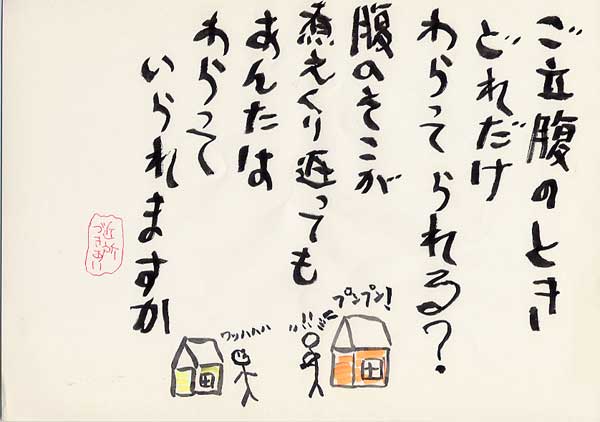 ご立腹のとき
どれだけ
わらってられる？
腹のそこが
煮えくり返っても
あんたは
わらって
いられますか
近所
づきあい
プンプン！
!!
ワッハハハ